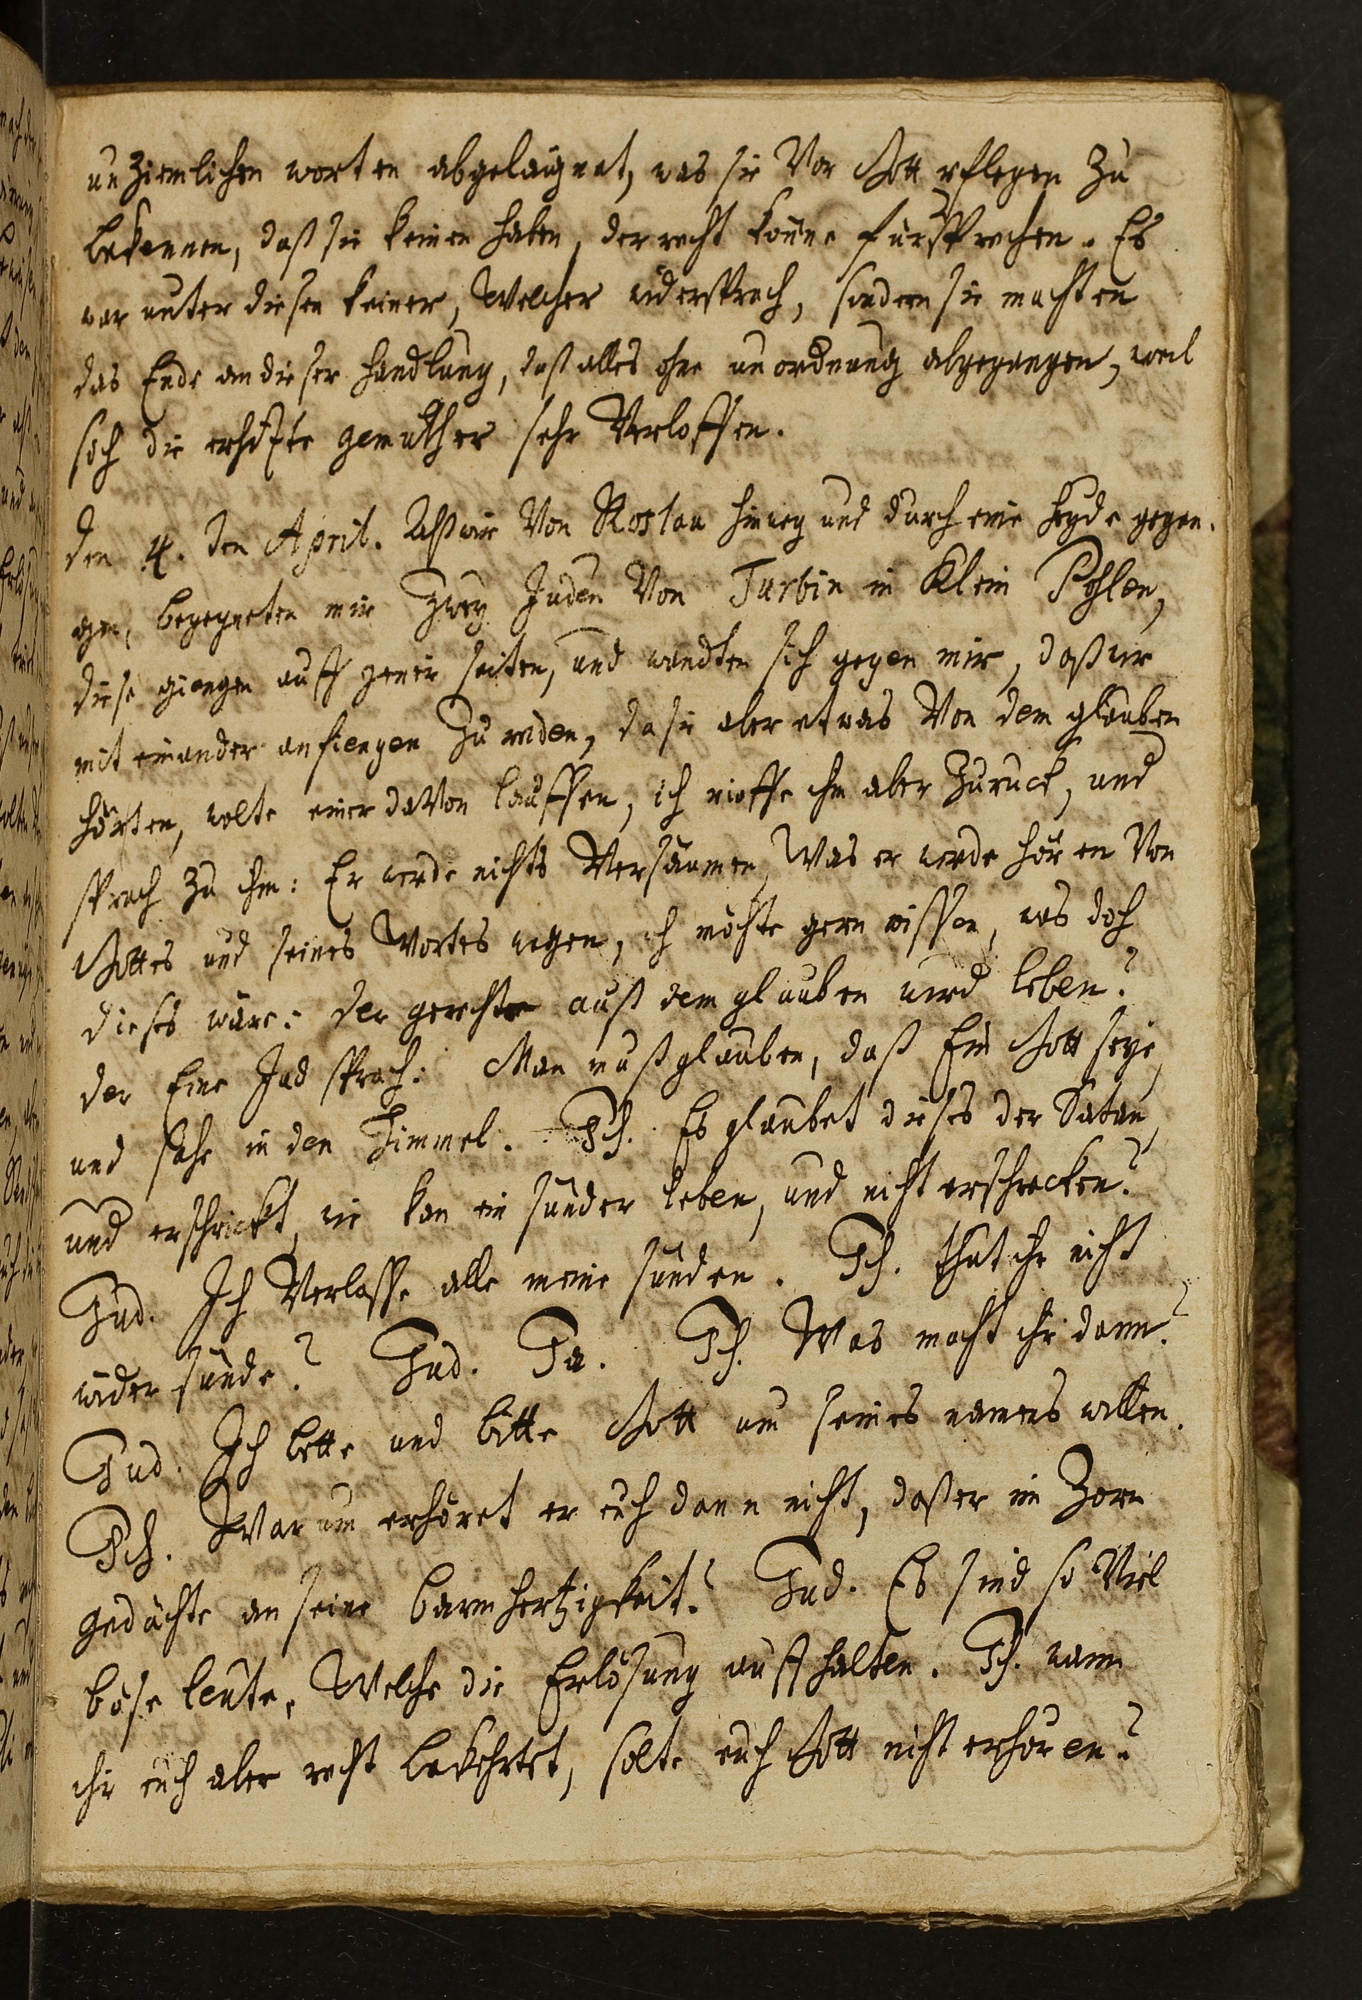 unziemlichen worten abgelaügnet, was sie Vor Gott pflegen Zu
bekennen, daß sie keinen haben, der recht könne fürsprechen. Es
war unter diesen keiner, Welcher widersprach, sondern sie machten
das Ende an dieser handlung, daß alles ohne unordnung abgegangen, weil
sich die erhitzte gemüther sehr Verloffen.
Den 4. den April. Alß wir Von Roslau hinweg und durch eine heyde gegan-
gen, begegneten mir Zwey Juden Von Turbin in Klein Pohlen,
diese giengen auff jener seiten, und wandten sich gegen mir, daß wir
mit einander anfiengen Zu reden, da sie aber etwas Von dem glauben
hörten, wolte einer daVon lauffen, ich rieffe ihm aber Zurück, und
sprach Zu ihm: Er werde nichts Versäumen, Was er werde hören Von
Gottes und seines Wortes wegen, ich möchte gern wissen, was doch
dieses wäre: der gerechte auß dem glauben wird leben?
der Eine Jud sprach: Man muß glauben, daß Ein Gott seye,
und sahe in den Himmel. Ich. Es glaubet dieses der Satan,
und erschrickt, wie kan ein sünder leben, und nicht erschrecken?
Jud. Ich Verlasse alle meine sünden. Ich. thut ihr nicht
wider sünde? Jud. Ja. Ich. Was macht ihr dann?
Jud. Ich bette und bitte Gott um seines namens willen.
Ich. Warum erhöret er euch dann nicht, daß er im Zorn
gedächte an seine barmhertzigkeit? Jud. Es sind so Viel
böse leute, Welche die Erlösung auffhalten. Ich. wann
ihr euch aber recht bekehrtet, solte euch Gott nicht erhören?